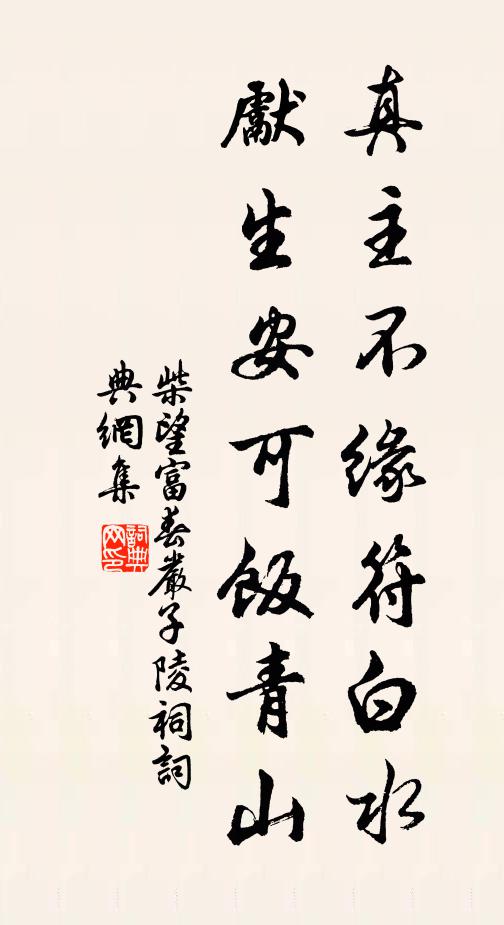 真主不緣符白水
獻生安可飯青山
柴望富春嚴子陵祠詞
典網集
詞典網印